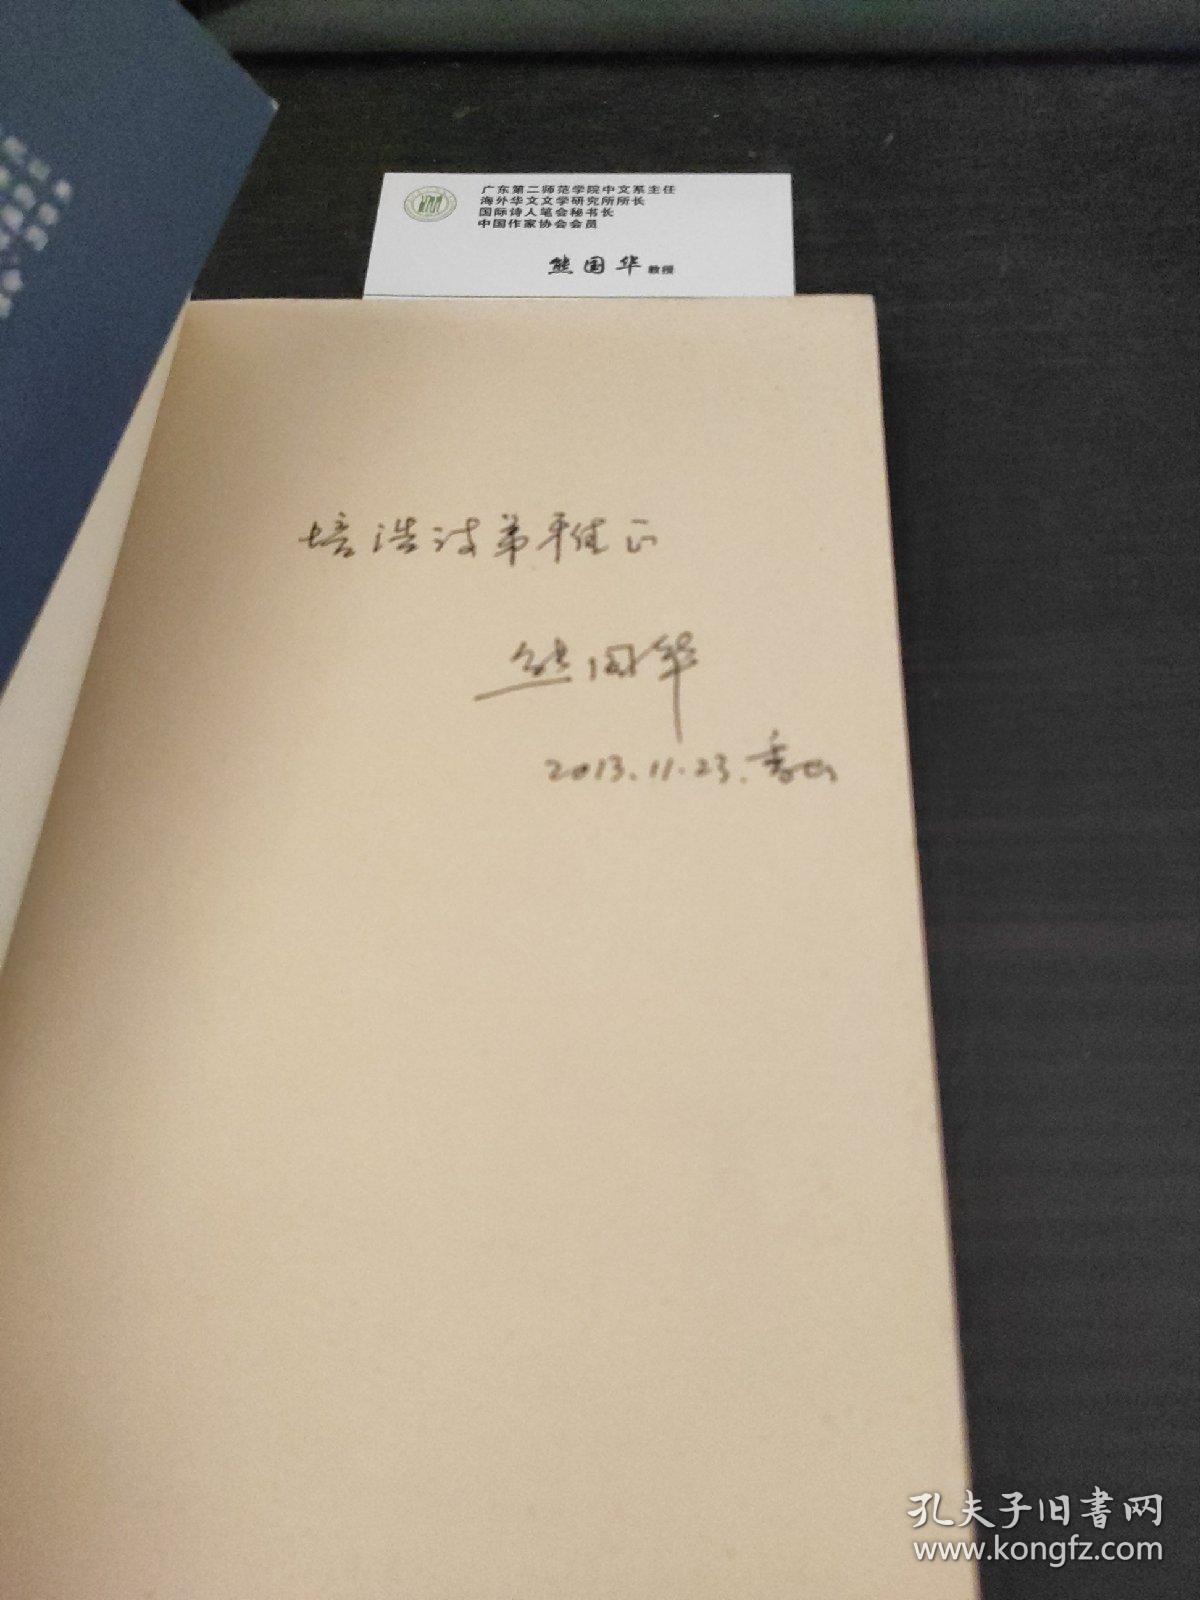 广东第二师范学院中文系主任
海外华文文学研究所所长
国际诗人笔会秘书长
中国作家协会会员
熊国华 教授
培浩诗弟雅正
熊国华
2013.11.23.香山
孔夫子旧书网
www.kongfz.com